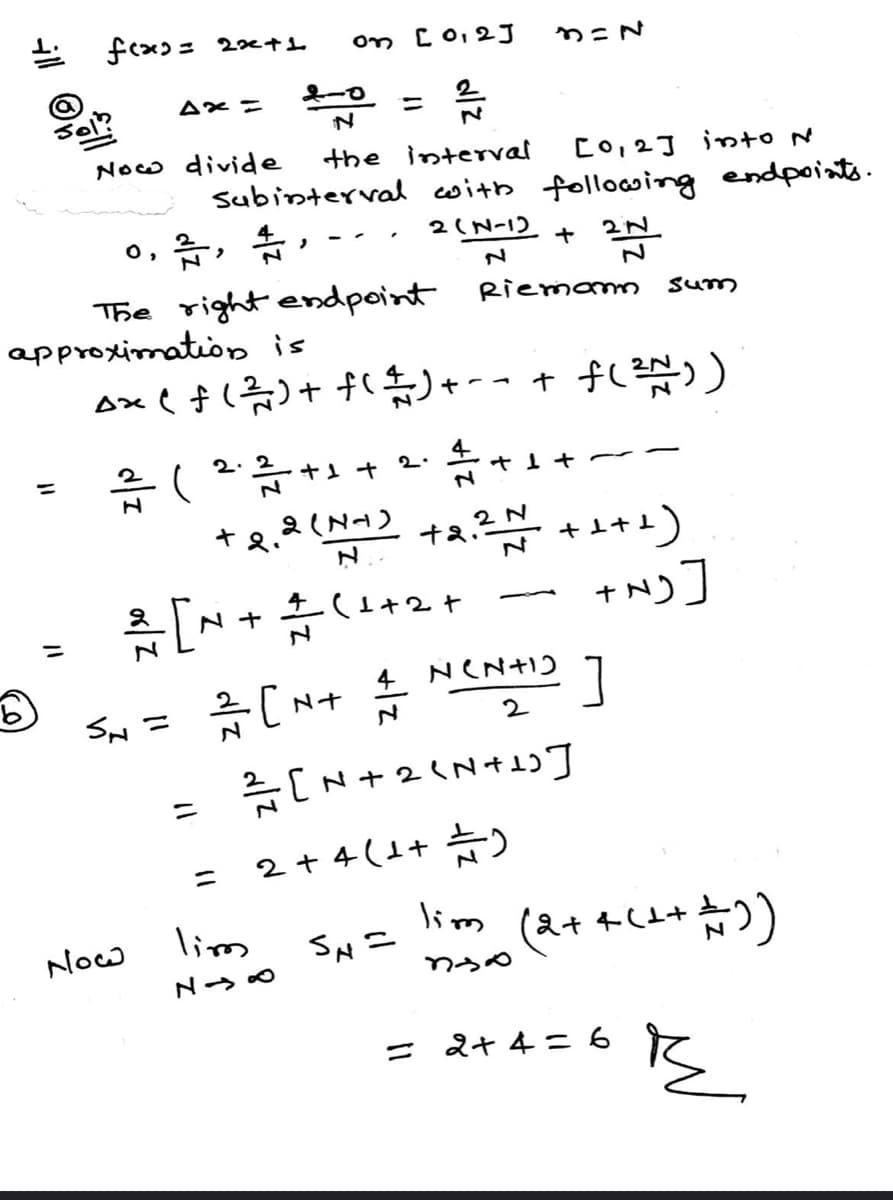 1. f(x) = 2x+1 on [0,2] n=N
(a) Soln: Δx = (2-0)/N = 2/N
Now divide the interval [0,2] into N
subinterval with following endpoints.
0, 2/N, 4/N, - - . . 2(N-1)/N + 2N/N
The right endpoint Riemann sum
approximation is
Δx ( f(2/N) + f(4/N) + - - + f(2N/N) )
= 2/N ( 2·2/N +1 + 2·4/N +1 + — —
+ 2.2(N-1)/N + 2.2N/N +1+1)
= 2/N [N + 4/N (1+2+ — +N)]
(b) SN = 2/N [N+ 4/N N(N+1)/2 ]
= 2/N [N+2(N+1)]
= 2+4(1+ 1/N)
Now lim N→∞ SN = lim n→∞ (2+4(1+1/N))
= 2+4 = 6